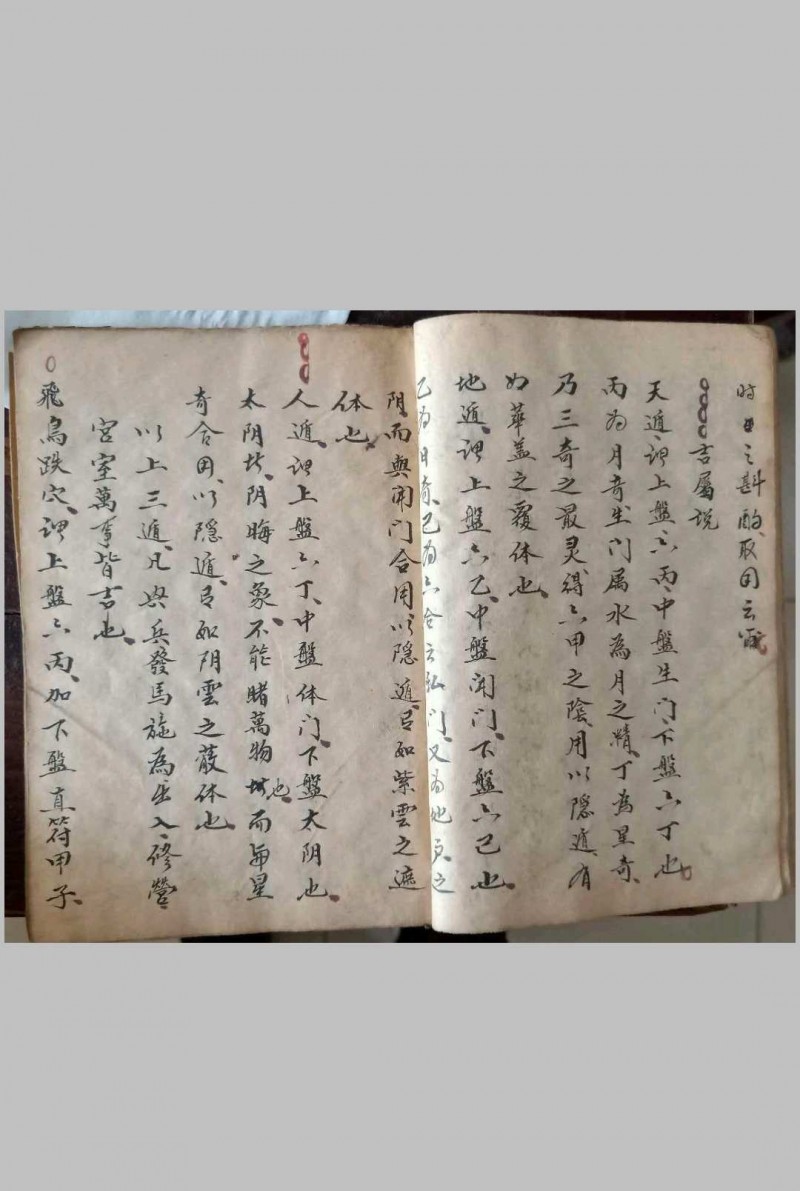 時日之斟酌取用云爾
吉屬说
天遁、謂上盤六丙、中盤生门、下盤六丁也
丙為月奇、生门属水為月之精、丁為星奇、
乃三奇之最灵、得六甲之陰、用以隠遁、有
如華盖之覆体也、
地遁、謂上盤六乙、中盤開门、下盤六己也、
乙为日奇、己为六合云私门、又为地户、之
阴而與開门合用以隠遁、是如紫雲之遮
体也、
人遁、謂上盤六丁、中盤休门、下盤太阴也、
太阴者、阴晦之象、不能睹萬物也、而與星
奇合用、以隠遁、是如阴雲之蔽体也、
以上三遁、凡興兵發馬施為出入、修營
宫室萬事皆吉也、
飛鳥跌穴、謂上盤六丙、加下盤直符甲子、